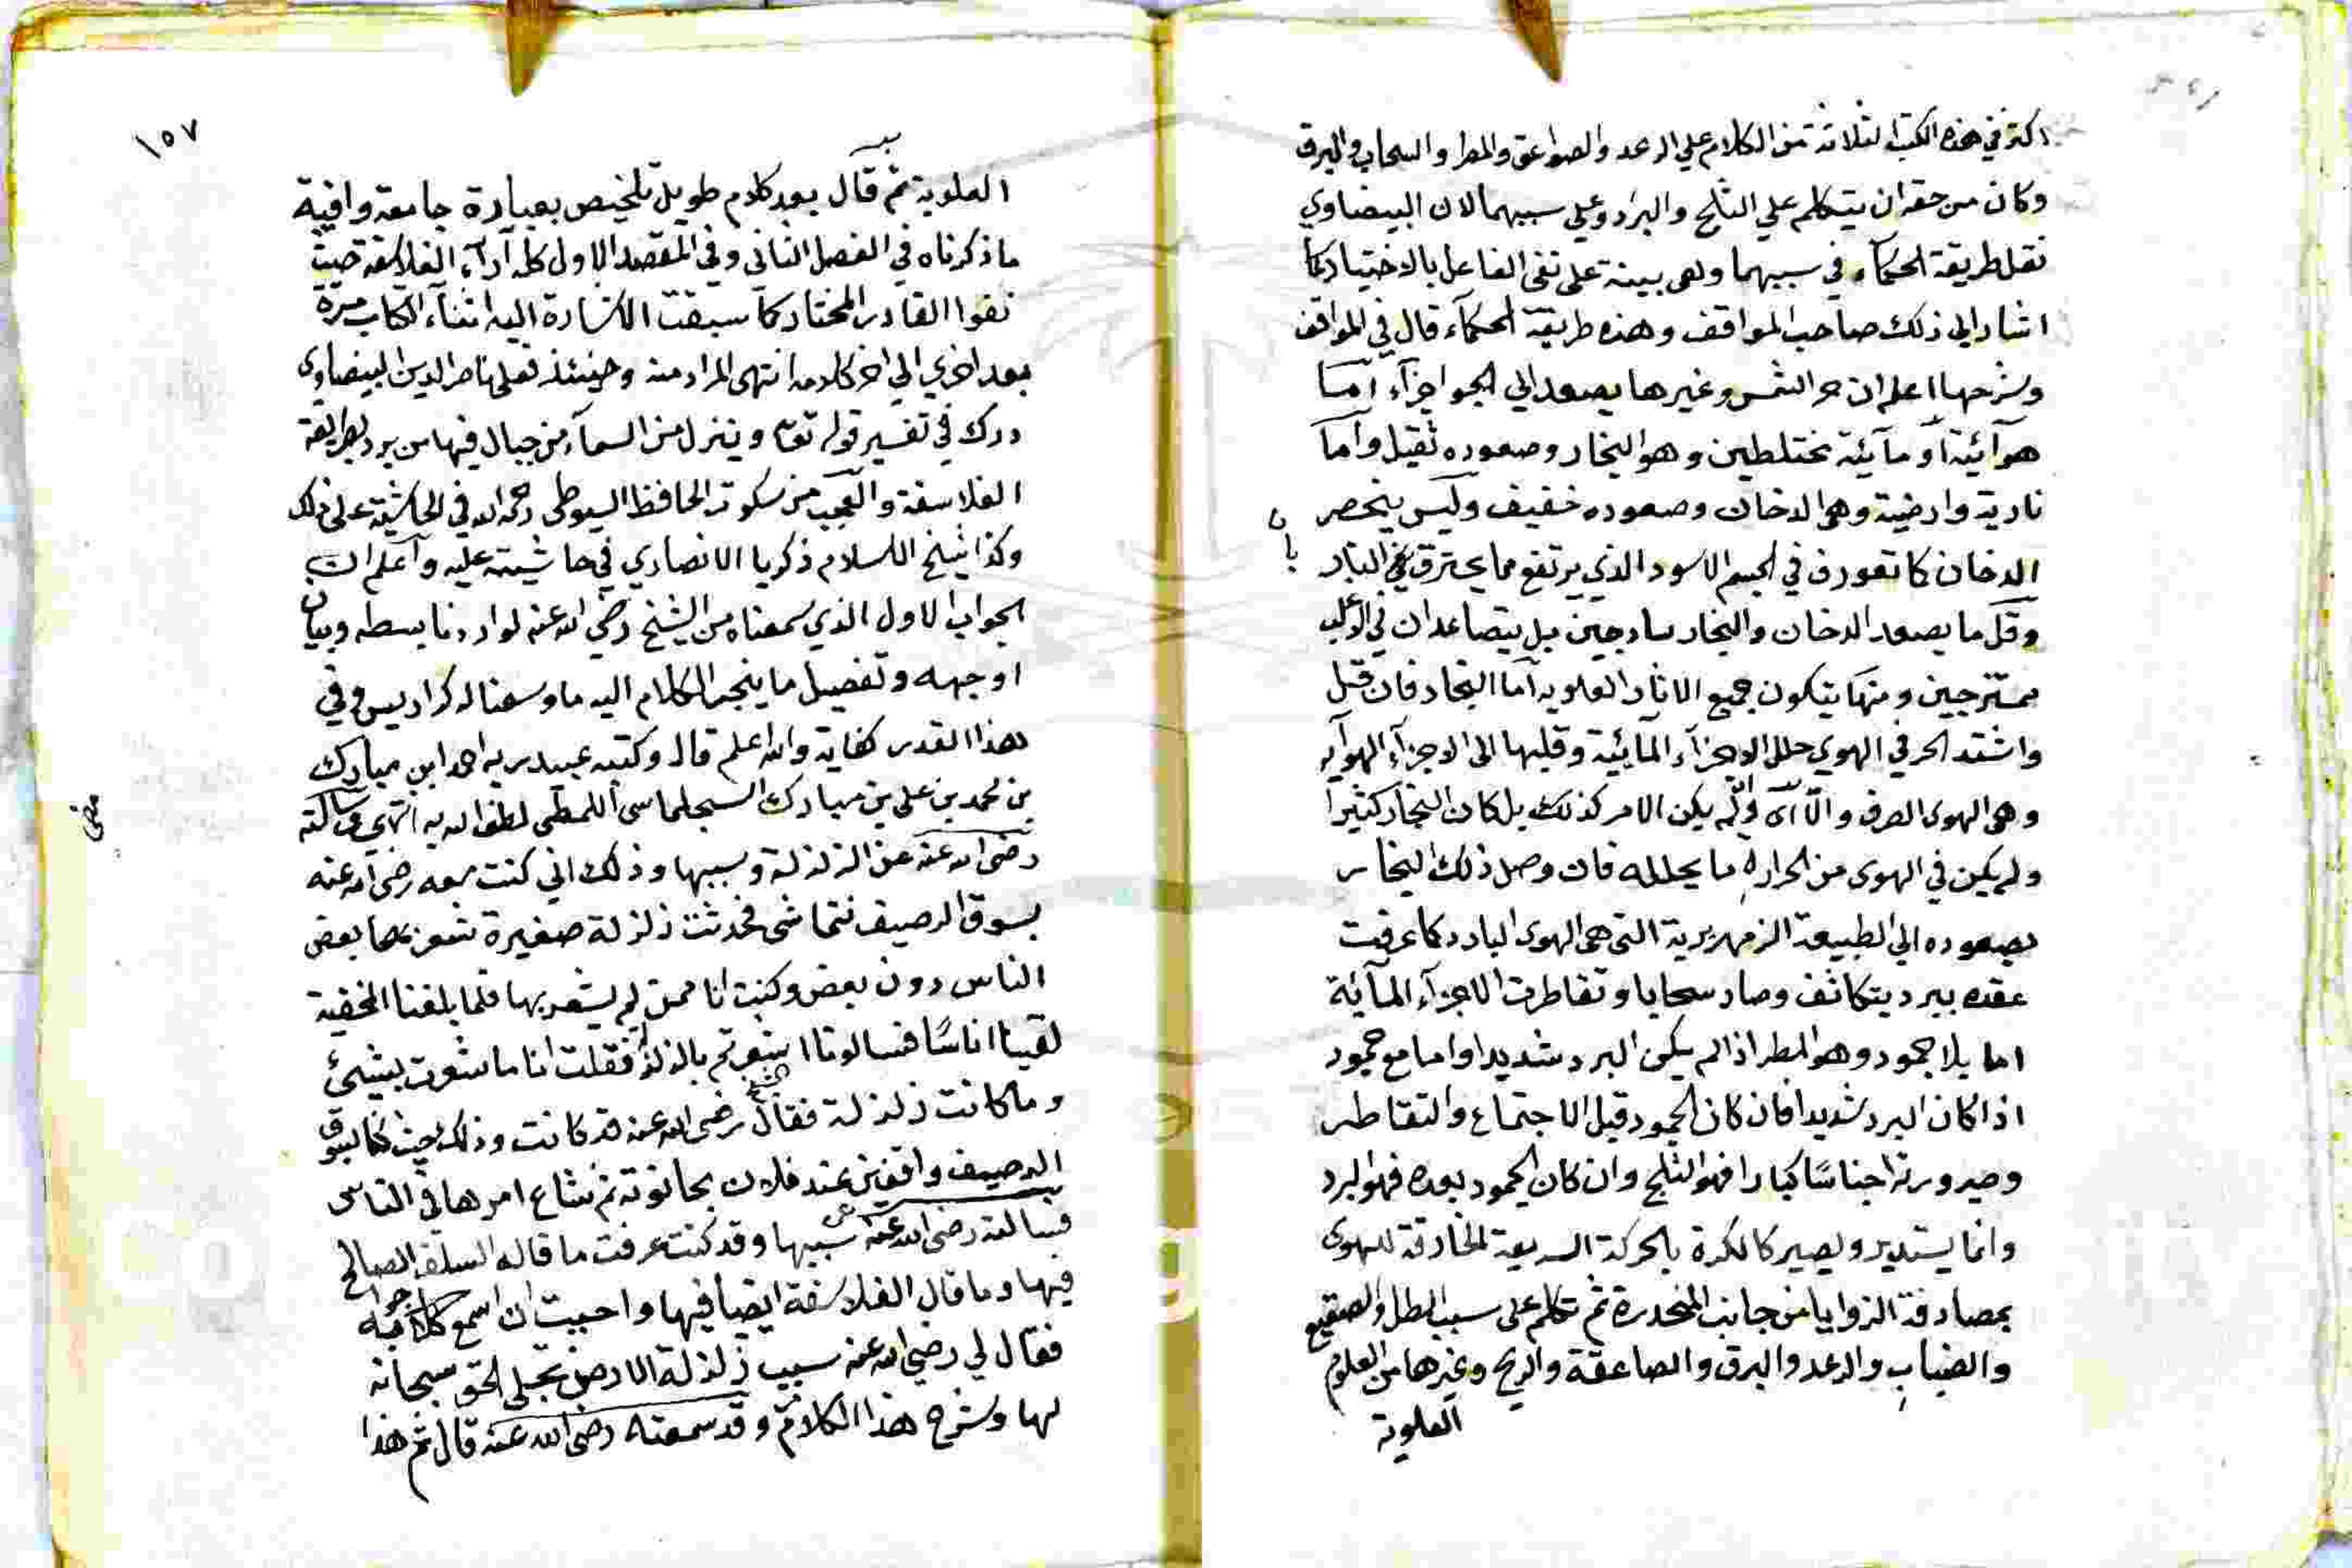 اكثر في هذه الكتب الثلاثة من الكلام علي الرعد والصواعق والمطر والسحاب والبرق
وكان من حقه ان يتكلم علي الثلج والبرد وعلي سببهما لان البيضاوي
نقل طريقة الحكماء في سببهما وهي مبينة على نفي الفاعل بالاختيار كما
اشار الي ذلك صاحب المواقف وهذه طريقة الحكماء قال في المواقف
وشرحها اعلم ان حر الشمس وغيرها يصعد الي الجو اجزآء امـا
هوآئية او مآئية مختلطين وهو البخار وصعوده ثقيل واما
نارية وارضية وهو الدخان وصعوده خفيف وليس ينحصر
الدخان كما تعورف في الجسم الاسود الذي يرتفع مما يحترق بالنار
وقل ما يصعد الدخان والبخار ساذجين بل يتصاعدان في الاغلب
ممتزجين ومنها يتكون جميع الاثار العلوية اما البخار فان قل
واشتد الحر في الهوي حلل الاجزآء المآئية وقلبها الى الاجزآء الهوآيه
وهي الهوى الصرف والا اى وان لم يكن الامر كذلك بل كان البخار كثيرا
ولم يكن في الهوى من الحرارة ما يحلله فان وصل ذلك البخار
بصعوده الي الطبيعة الزمهريرية التي هي الهوى البارد كما عرفت
عقده ببرد يتكاثف وصار سحابا وتقاطرت الاجزآء المآئية
اما بلا جمود وهو المطر اذا لم يكن البرد شديدا واما مع جمود
اذا كان البرد شديدا فان كان الجمود قبل الاجتماع والتقاطر
وصيرورته اجناسًا كبارا فهو الثلج وان كان الجمود بعده فهو البرد
وانما يستدير ويصير كالكرة بالحركة السريعة الخارقة للهوى
بمصادفة الزوايا من جانب المنحدرة ثم تكلم على سبب الطل والصقيع
والضباب والرعد والبرق والصاعقة والريح وغيرها من العلوم
العلوية
١٥٧
العلوية ثم قال بعد كلام طويل تلخيص بعبارة جامعة وافية
ما ذكرناه في الفصل الثاني وفي المقصد الاول كله آرآء الفلاسفة حيث
نفوا القادر المختار كما سبقت الاشارة اليه اثنآء الكتاب مرة
بعد اخري الي اخر كلامه انتهى المراد منه وحينئذ فعلى ناصر الدين البيضاوى
درك في تفسير قوله تعا وينزل من السمآء من جبال فيها من برد بطريقة
الفلاسفة والعجب من سكوت الحافظ السيوطى رحمه الله في الحاشية على ذلك
وكذا شيخ الاسلام زكريا الانصاري في حاشيته عليه واعلم ان
الجواب الاول الذي سمعناه من الشيخ رضي الله عنه لو اردنا بسطه وبيان
اوجهه وتفصيل ما ينجر الكلام اليه ما وسعنا له كراديس وفي
هذا القدر كفاية والله اعلم قال وكتبه عبيد ربه احمد ابن مبارك
بن محمد بن علي بن مبارك السجلماسى اللمطى لطف الله به انتهي وسالته
رضى الله عنه عن الزلزلة وسببها وذلك اني كنت معه رضى الله عنه
بسوق الرصيف نتماشى فحدثت زلزلة صغيرة شعر بها بعض
الناس دون بعض وكنت انا ممن لم يشعر بها فلما بلغنا المخفية
لقينا اناسًا فسالونا اشعرتم بالزلزلة فقلت انا ما شعرت بشئ
وما كانت زلزلة فقال الشيخ رضى الله عنه قد كانت وذلك حيث كنا بسوق
الرصيف واقفين عند فلان بحانوته ثم شاع امرها في الناس
فسالته رضى الله عنه عن سببها وقد كنت عرفت ما قاله السلف الصالح
فيها وما قال الفلاسفة ايضا فيها واحببت ان اسمع كلامه
فقال لي رضي الله عنه سبب زلزلة الارض تجلى الحق سبحانه
لها وشرح هذا الكلام وقد سمعته رضى الله عنه قال ثم هذا